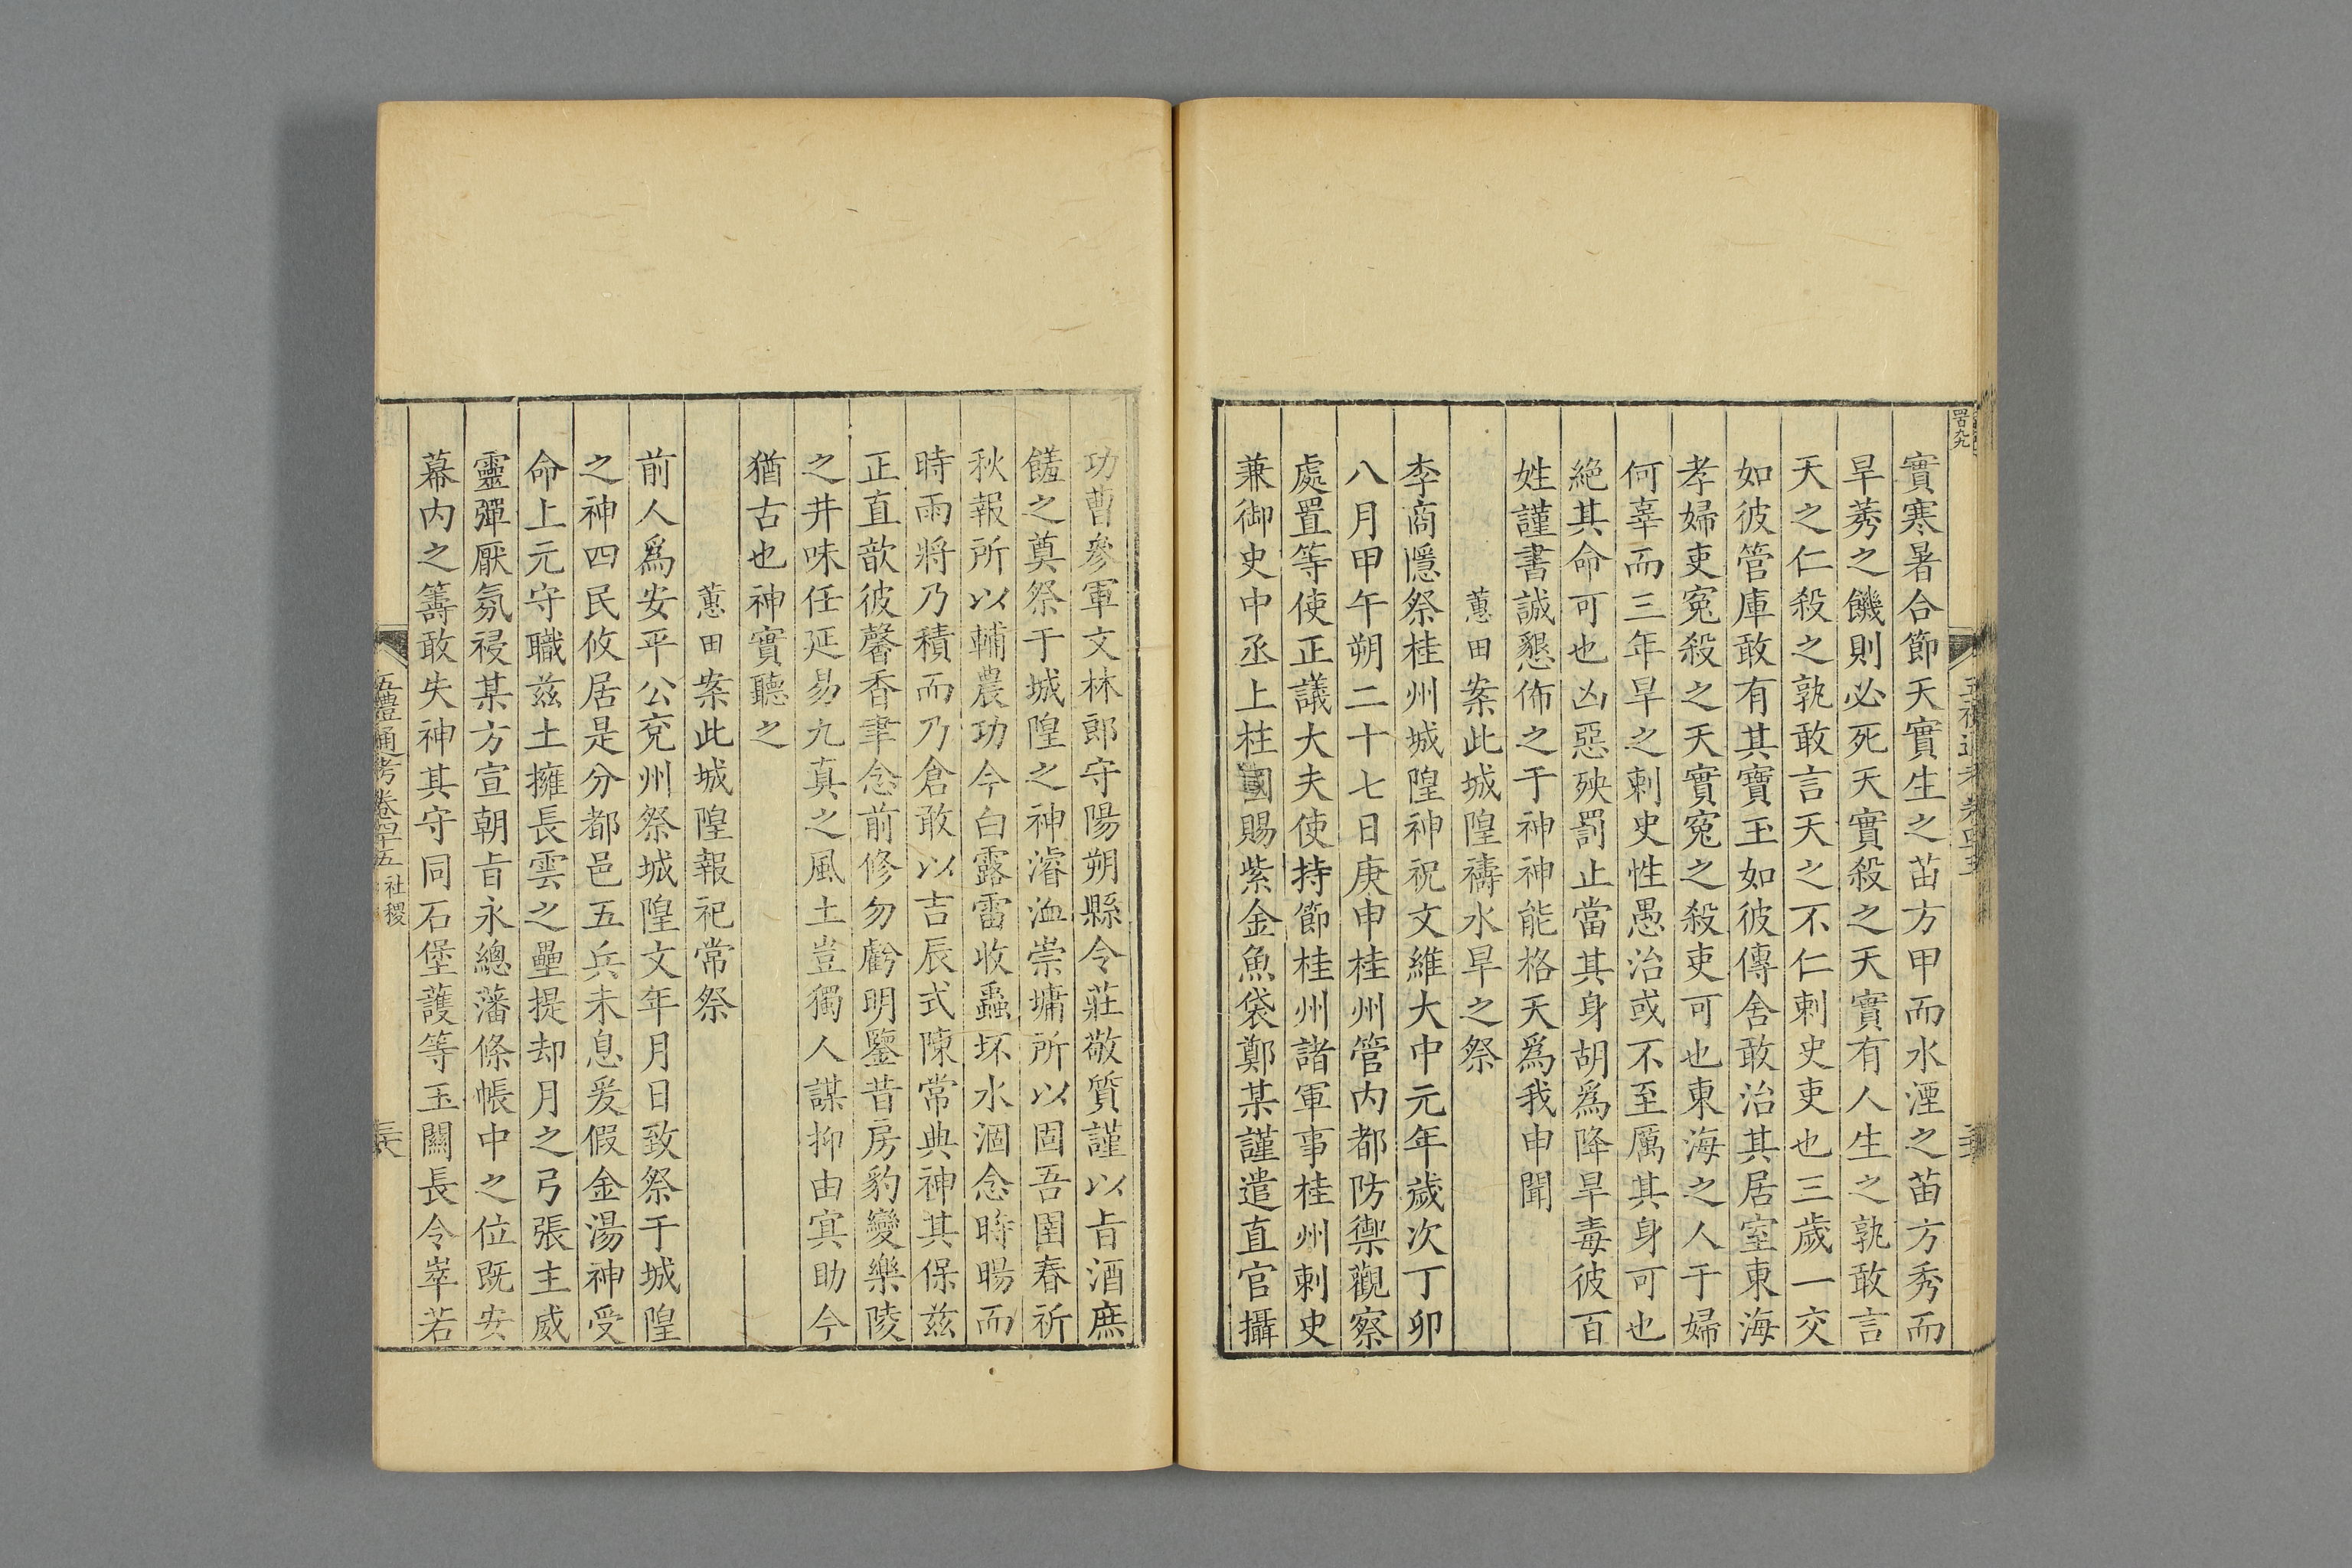 實寒暑合節天實生之苗方甲而水湮之苗方秀而
旱莠之饑則必死天實殺之天實有人生之孰敢言
天之仁殺之孰敢言天之不仁刺史吏也三歲一交
如彼管庫敢有其寶玉如彼傳舍敢治其居室東海
孝婦吏寃殺之天實寃之殺吏可也東海之人于婦
何辜而三年旱之刺史性愚治或不至厲其身可也
絶其命可也凶惡殃罰止當其身胡爲降旱毒彼百
姓謹書誠懇佈之于神神能格天爲我申聞
蕙田案此城隍禱水旱之祭
李商隱祭桂州城隍神祝文維大中元年歲次丁卯
八月甲午朔二十七日庚申桂州管内都防禦觀察
處置等使正議大夫使持節桂州諸軍事桂州刺史
兼御史中丞上柱國賜紫金魚袋鄭某謹遣直官攝
功曹參軍文林郎守陽朔縣令莊敬質謹以旨酒庶
饈之奠祭于城隍之神濬洫崇墉所以固吾圉春祈
秋報所以輔農功今白露雷收蟲坏水涸念時暘而
時雨將乃積而乃倉敢以吉辰式陳常典神其保茲
正直歆彼馨香聿念前修勿虧明鑒昔房豹變樂陵
之井味任延易九真之風土豈獨人謀抑由㝠助今
猶古也神實聽之
蕙田案此城隍報祀常祭
前人爲安平公兗州祭城隍文年月日致祭于城隍
之神四民攸居是分都邑五兵未息爰假金湯神受
命上元守職茲土擁長雲之壘提却月之弓張主威
靈彈厭氛祲某方宣朝旨永總藩條帳中之位既安
幕内之籌敢失神其守同石堡護等玉關長令崒若
五禮通考卷四十五 社稷